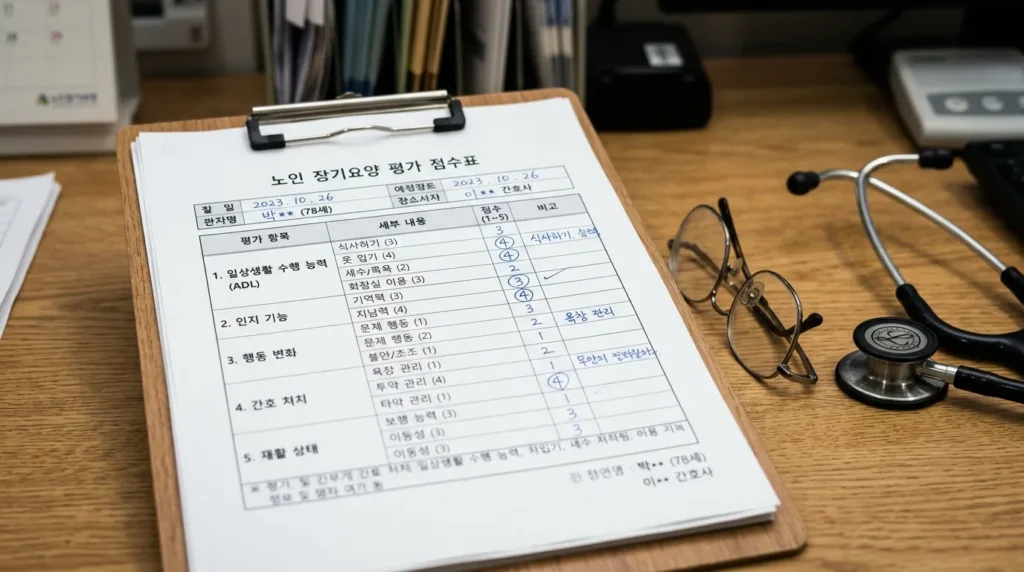 노인 장기요양 평가 점수표
칠 일 2023. 10. 26 예정장트 2023. 10. 26
관자명 박** (78세) 장소서자 이** 간호사
평가 항목 세부 내용 점수 (1~5) 비고
1. 일상생활 수행 능력 (ADL)
식사하기 (3) 3
옷 입기 (4) 4 식사하기 능력
세수/목욕 (2) 4
화장실 이용 (3) 2
기억력 (3) 3 ✓
2. 인지 기능
지남력 (4) 4
문제 행동 (1) 3
3. 행동 변화
문제 행동 (2) 2 욕창 관리
불안/초조 (1) 1
욕창 관리 (1) 2
4. 간호 처치
투약 관리 (4) 1
타약 관리 (1) 4
보행 능력 (3) 1
5. 재활 상태
이동성 (3) 3
이동성 (3) 3
※ 평가, 및 간부게 간호 처치 일상생활 수행 능력, 처입기, 세수
정보 및
박** (78세)
이** 간호사